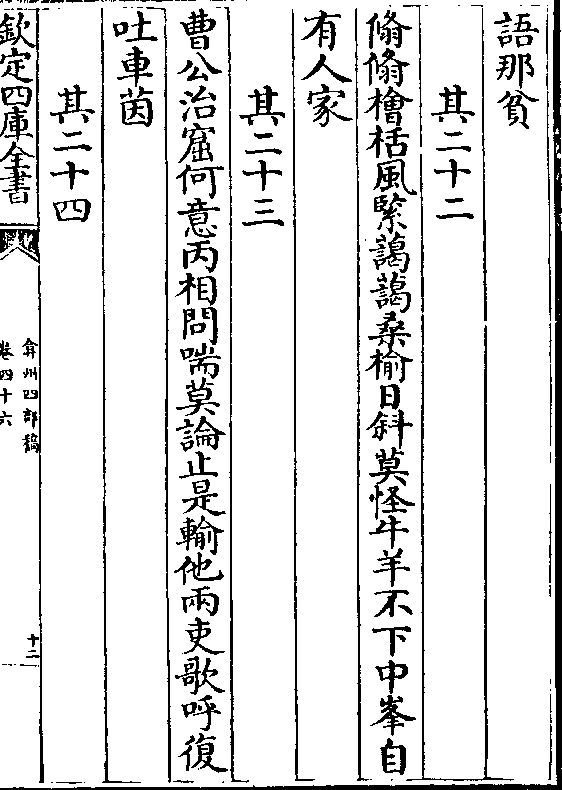 語那貧
其二十二
翛翛檜栝風緊藹藹桑榆日斜莫怪牛羊不下中峯自
有人家
其二十三
曹公治窟何意丙相問喘莫論止是輸他兩吏歌呼復
吐車茵
其二十四
欽定四庫全書
弇州四部稿
卷四十六
十二